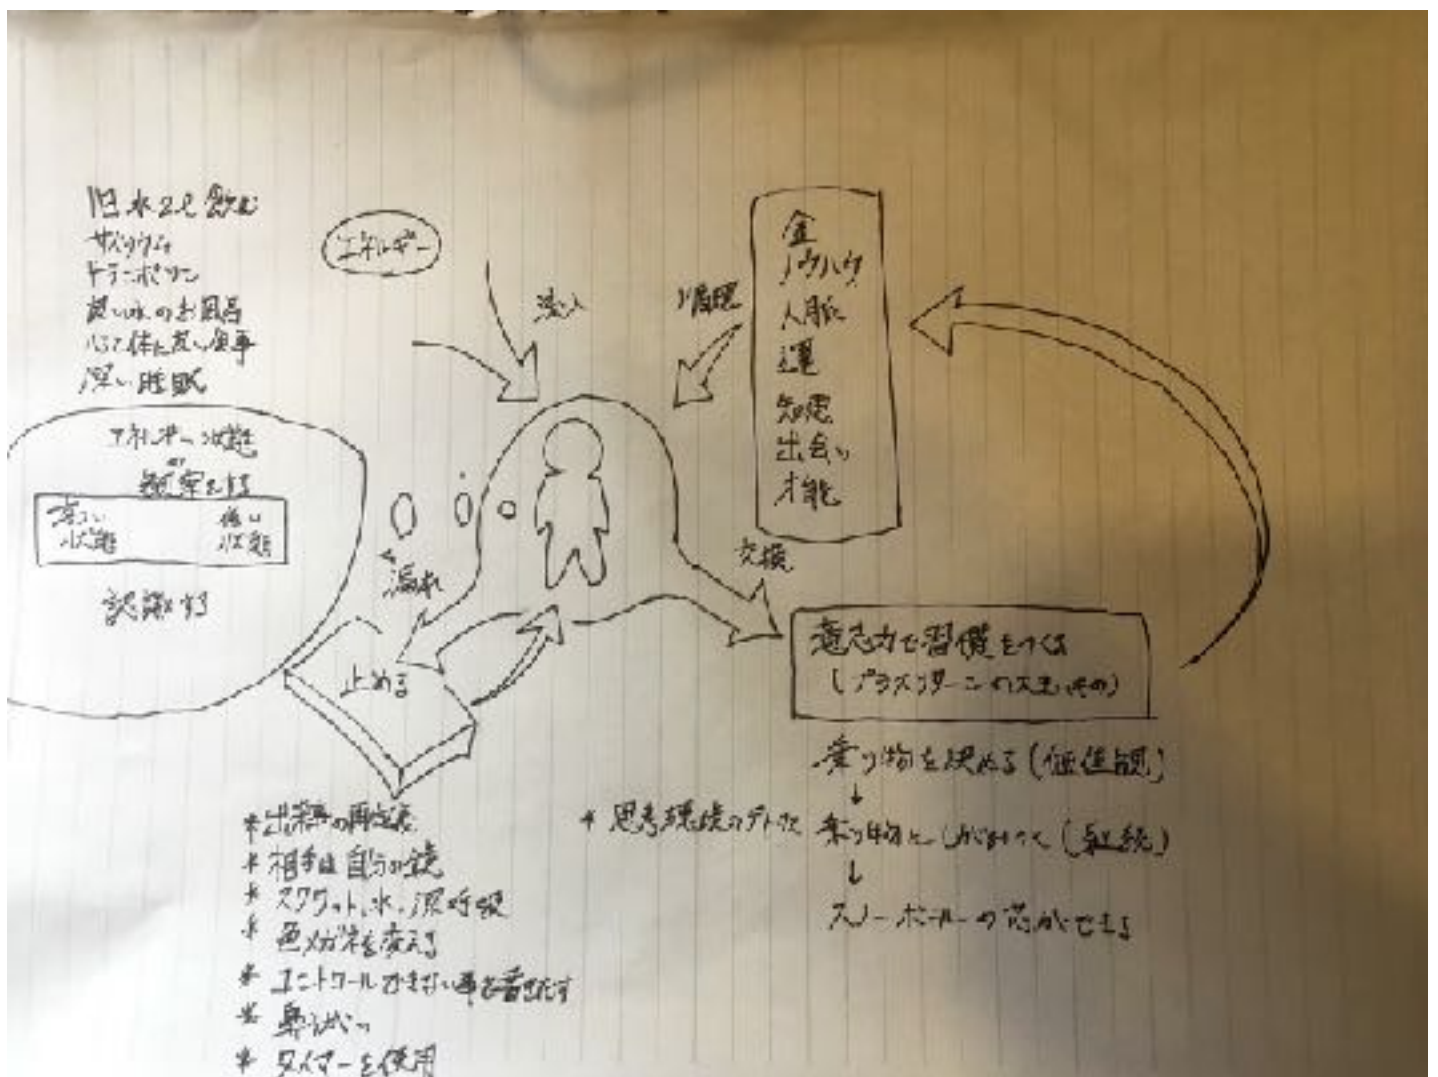 1日水2ℓ飲む
トランポリン
良い水のお風呂
心と体に良い食事
深い睡眠
エネルギー
流入
循環
金
ノウハウ
人脈
運
知恵
出会い
才能
エネルギー状態
観察をする
高い
状態
低い
状態
認識する
漏れ
止める
交換
意志力で習慣をつくる
乗り物を決める(価値観)
↓
乗り物にしがみつく(継続)
↓
スノーボールの芯ができる
*出来事の再定義
*相手は自分の鏡
*スクワット、水、深呼吸
*色メガネを変える
*コントロールできない事を書きだす
*タイマーを使用
*思考環境のデトックス